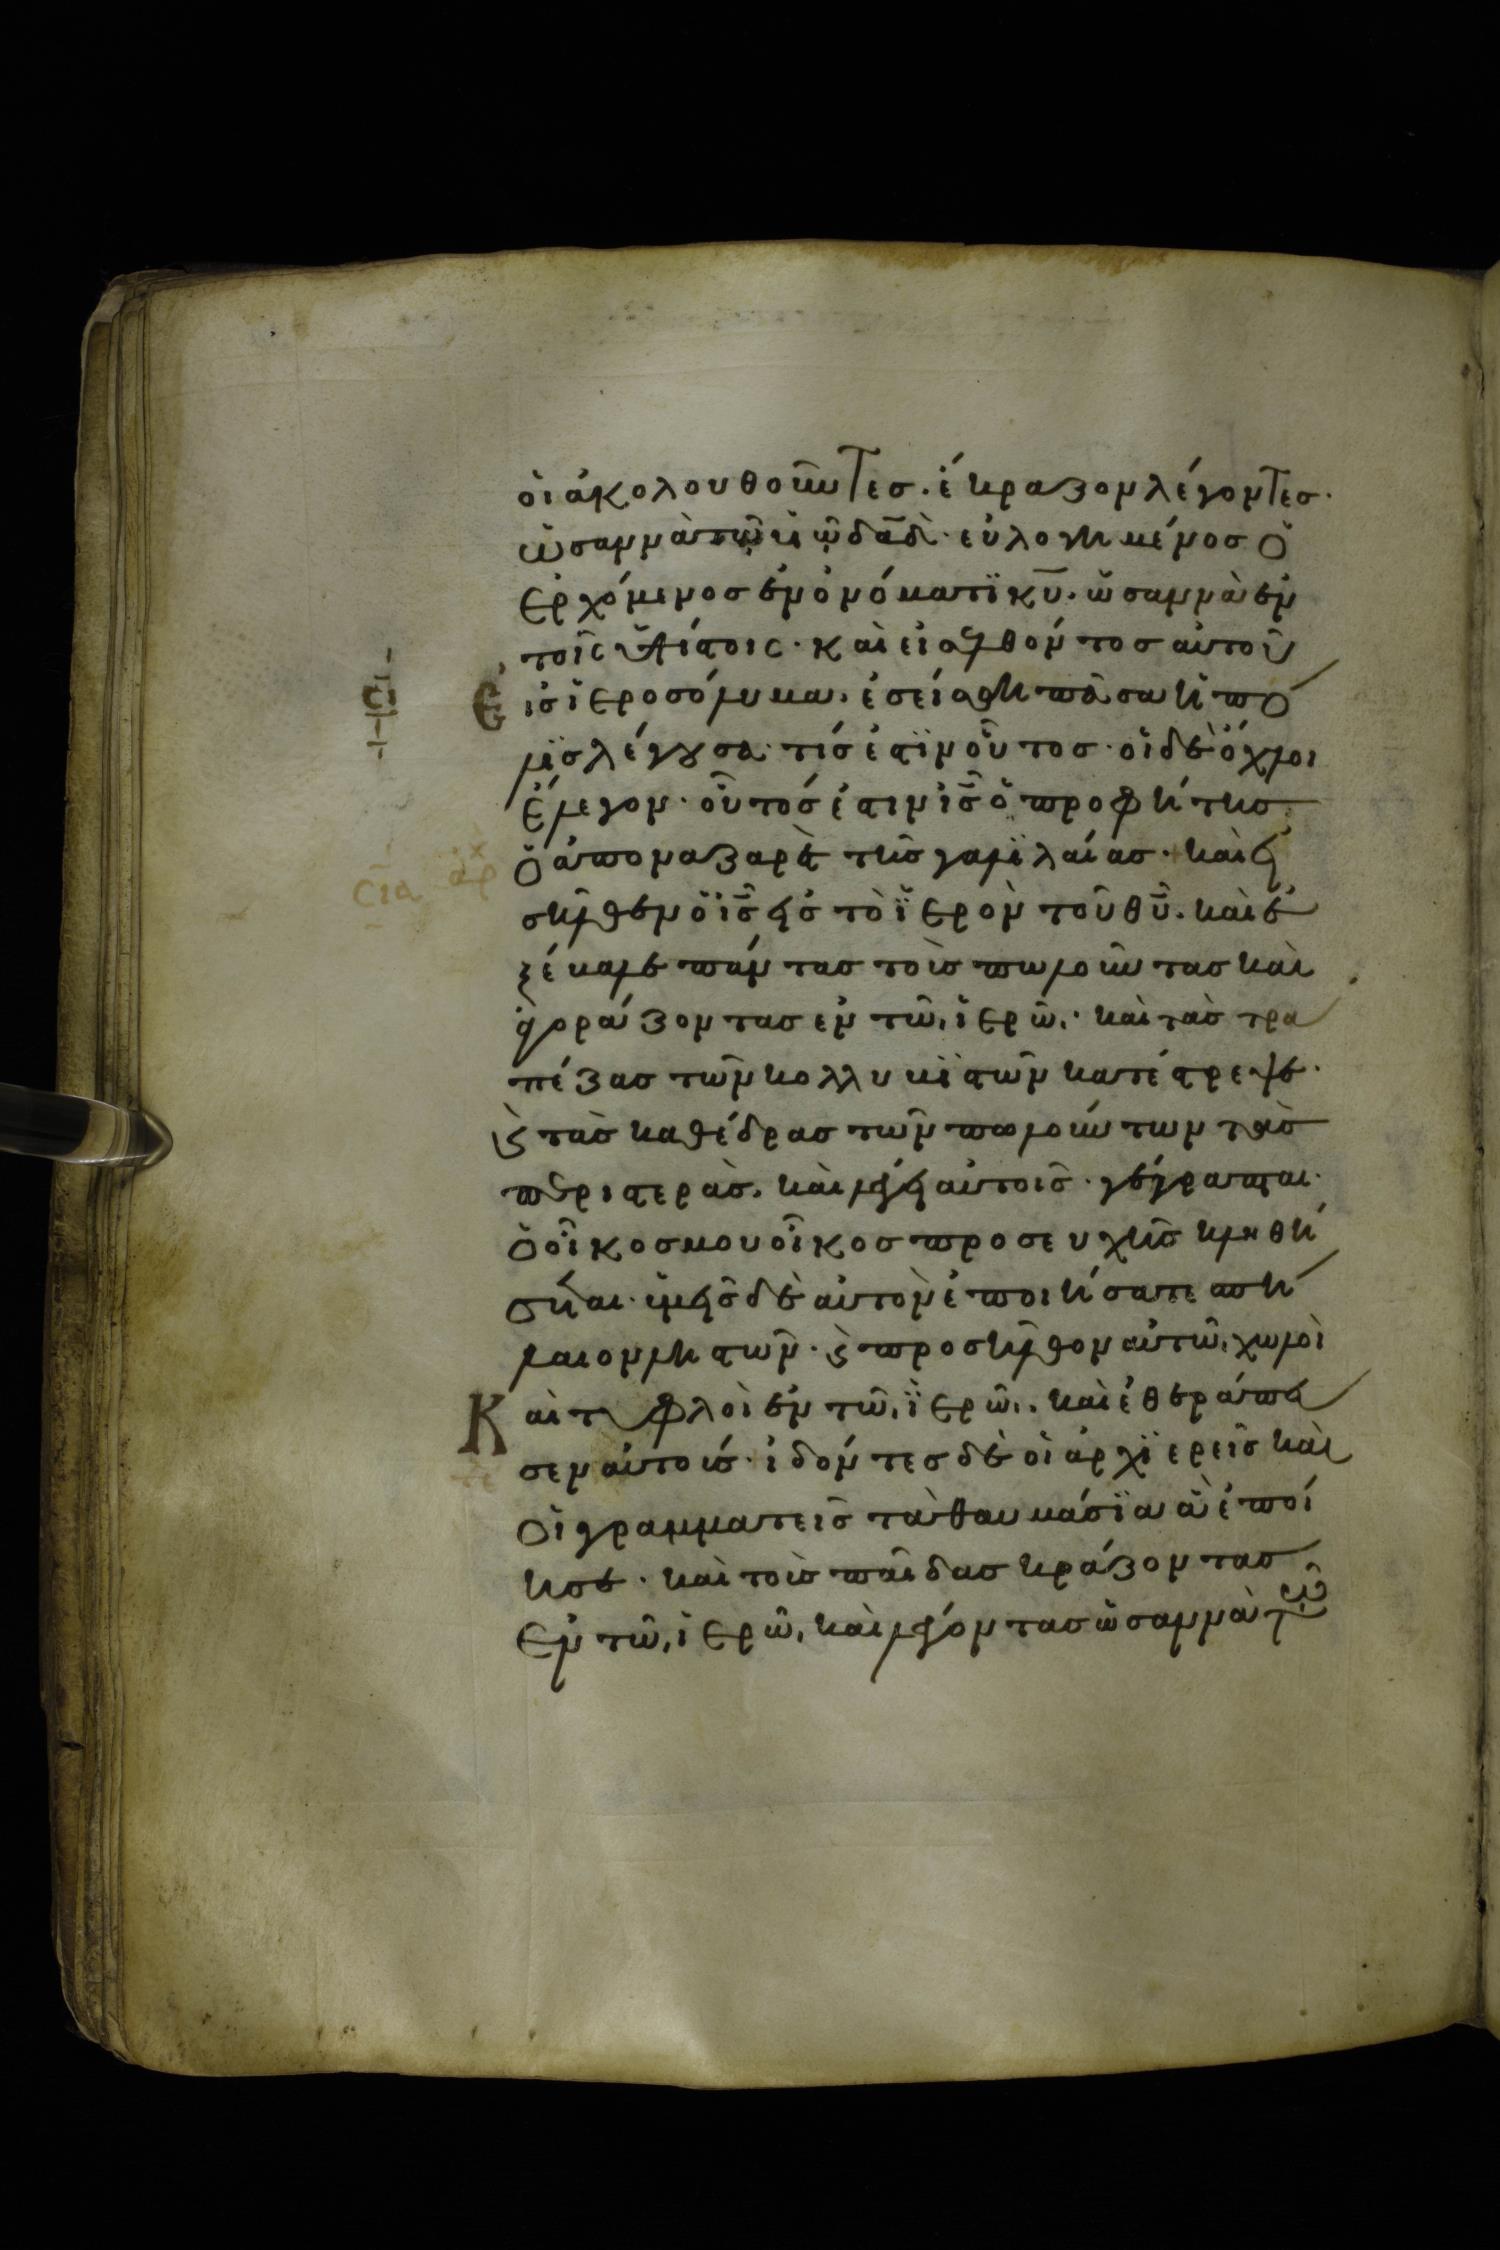 οἱ ἀκολουθοῦντες. ἔκραζον λέγοντες.
ὡσαννὰ τῷ υἱῷ δᾱδ̄. εὐλογημένος ὁ
ἐρχόμενος ἐν ὀνόματϊ κ̄ῡ. ὡσαννὰ ἐν
τοῖς ὑψίστοις. καὶ εἰσελθόντος αὐτοῦ
Εἰς ἱεροσόλυμα. ἐσείσθη πᾶσα ἡ πό
λϊς λέγουσα. τίς ἐστϊν οὗτος. οἱ δὲ ὄχλοι
ἔλεγον. οὗτός ἐστιν ῑς̄ ὁ προφήτης
ὁ ἀπο ναζαρὲτ τῆς γαλϊλαίας. καὶ εἰ
σῆλθεν ὁ ῑς̄ εἰς τὸ ἱερὸν τοῦ θ̄ῡ. καὶ ἐ
ξέβαλε πάντας τοὺς πωλοῦντας καὶ
ἀγοράζοντας ἐν τῷ ἱερῷ. καὶ τὰς τρα
πέζας τῶν κολλυβϊστῶν κατέστρεψε.
ϗ τὰς καθέδρας τῶν πωλούντων τὰς
περιστεράς. καὶ λέγει αὐτοῖς. γέγραπται.
ὁ οἶκος μου οἶκος προσευχῆς κληθή
σεται. ὑμεῖς δὲ αὐτὸν ἐποιήσατε σπή
λαιον λῃστῶν. ϗ προσῆλθον αὐτῷ χωλοὶ
Καὶ τυφλοὶ ἐν τῷ ἱερῷ. καὶ ἐθεράπευ
σεν αὐτούς. ἰδόντες δὲ οἱ ἀρχϊερεῖς καὶ
οἱ γραμματεῖς τὰ θαυμάσϊα ἃ ἐποί
ησε. καὶ τοὺς παῖδας κράζοντας
ἐν τῷ ἱερῷ. καὶ λέγοντας ὡσαννὰ τῷ
σῑᾱ
ἀρχ